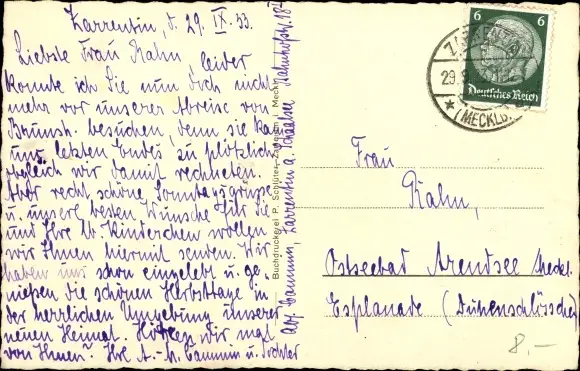 Zarrentin, d. 29. IX. 33.
Liebste Frau Rahn, leider
konnte ich Sie nun doch nicht
mehr vor unserer Abreise von
Brunsh. besuchen, denn sie kam
uns letzten Endes zu plötzlich
obgleich wir damit rechneten.
Aber recht schöne Sonntagsgrüsse
u. unsere besten Wünsche für Sie
und Ihre lb. Kinderchen wollen
wir Ihnen hiermit senden. Wir
haben uns schon eingelebt u. ge-
nießen die schönen Herbsttage in
der herrlichen Umgebung unserer
neuen Heimat. Hören wir mal
von Ihnen? Ihre A.-M. Cammin u. Tochter
Abs. Cammin, Zarrentin a. Schaalsee, Bahnhofstr. 182
Buchdruckerei P. Schlüter, Zarrentin i. Meckl.
6 6
Deutsches Reich
ZARRENTIN
29.9.
(MECKLB.)
Frau
Rahn,
Ostseebad Arendsee Meckl.
Esplanade (Dünenschlösschen)
8,-